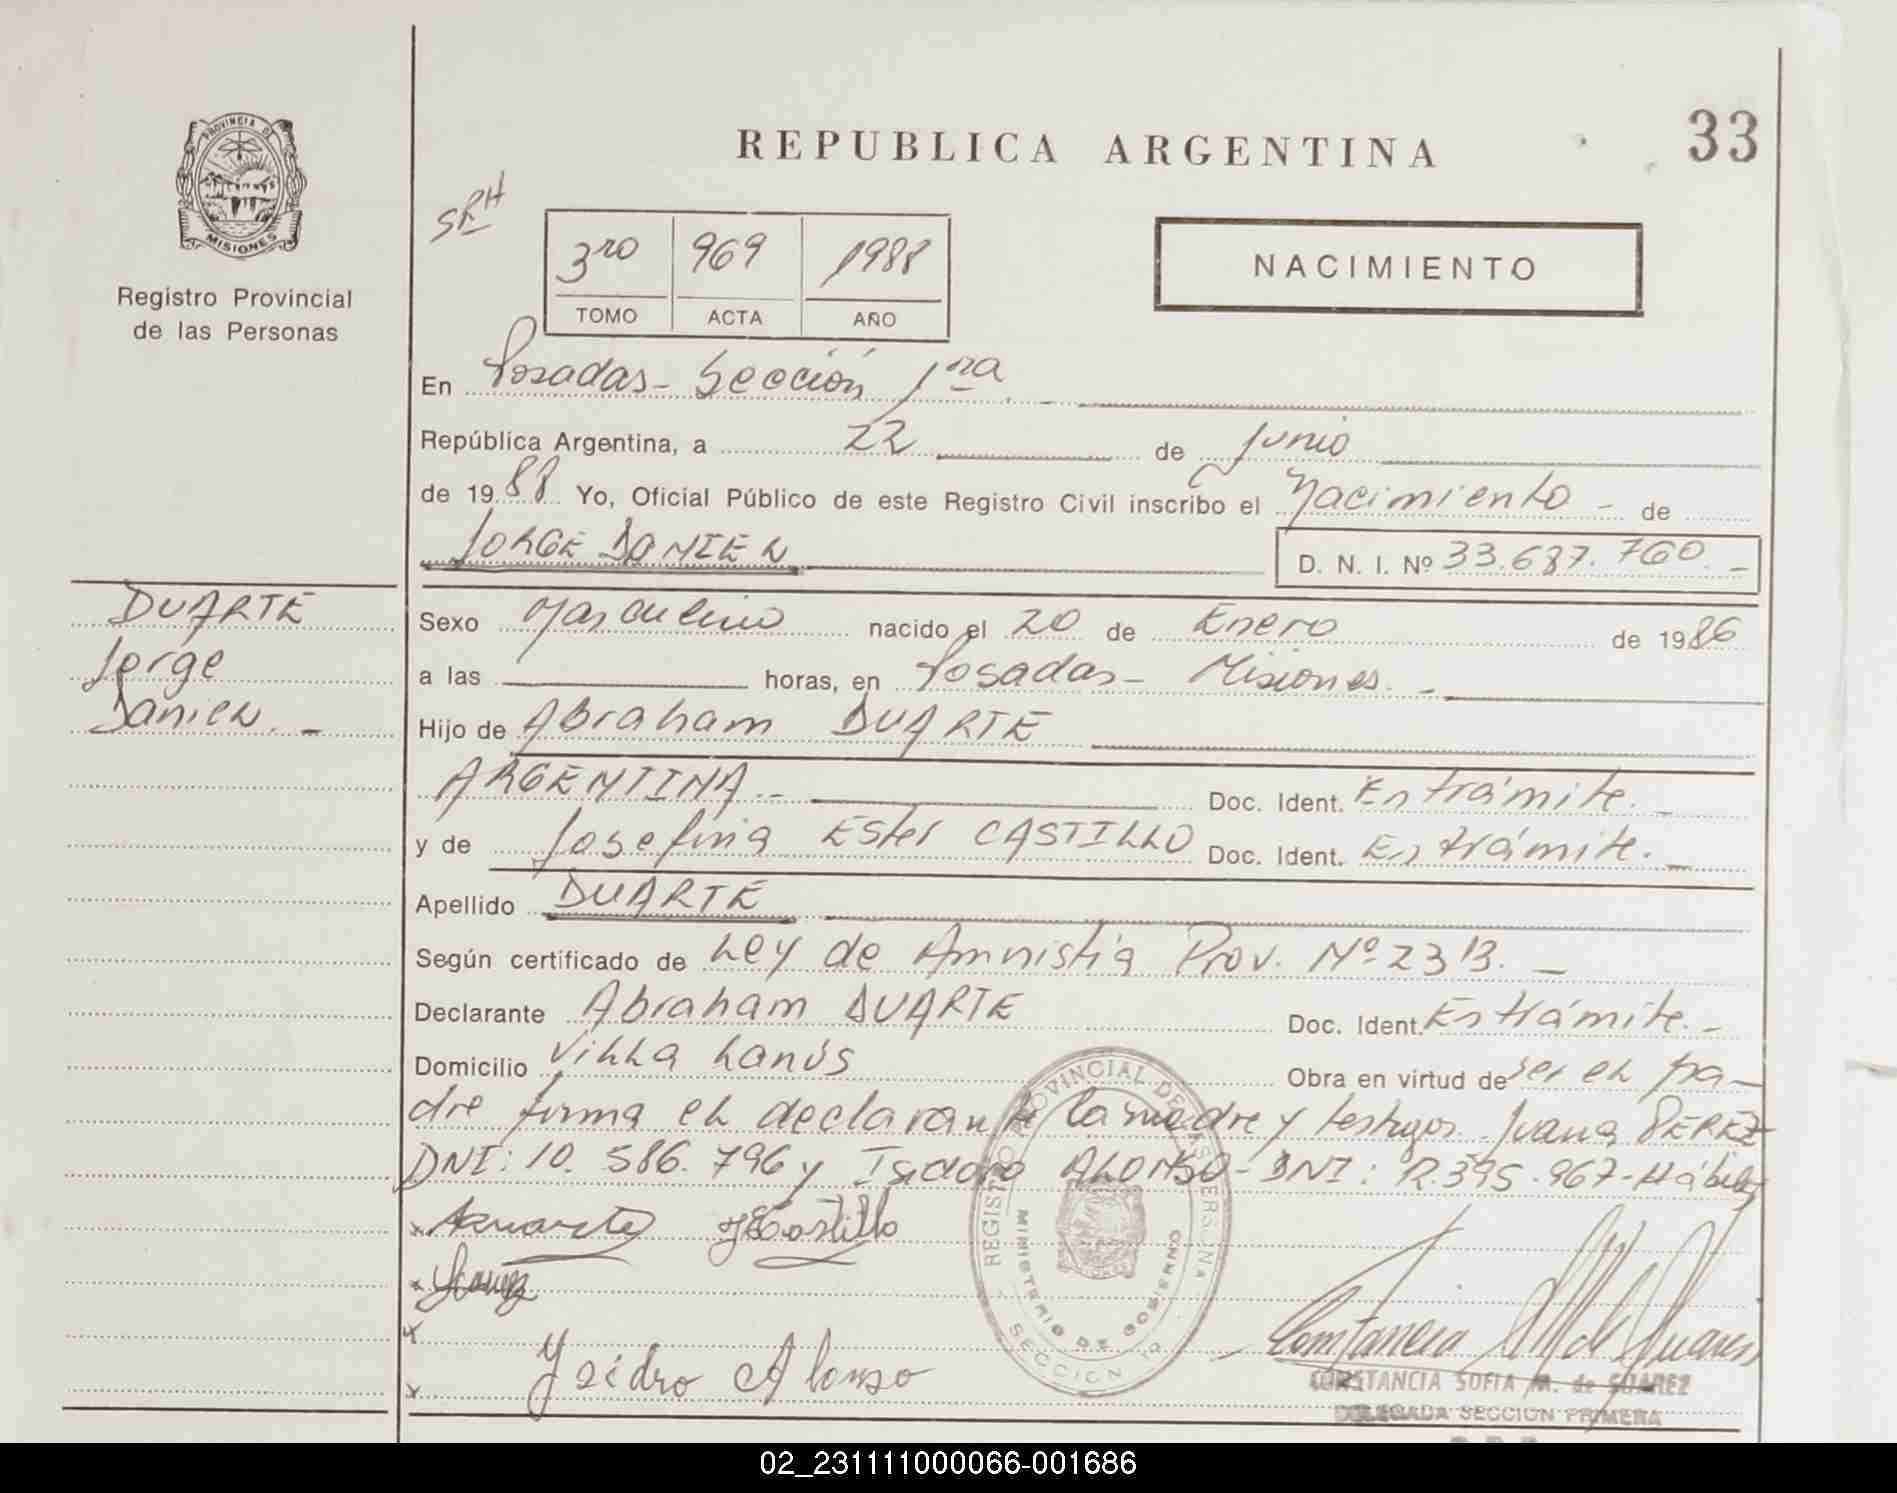 REPUBLICA ARGENTINA
33
PROVINCIA DE
MISIONES
Registro Provincial
de las Personas
SRH
3ro 969 1988
TOMO ACTA AÑO
NACIMIENTO
En Posadas - Sección 1ra.
República Argentina, a 22 de Junio
de 1988 Yo, Oficial Público de este Registro Civil inscribo el Nacimiento - de
JORGE DANIEL
D. N. I. Nº 33.687.760.-
DUARTE
Jorge
Daniel.-
Sexo Masculino nacido el 20 de Enero de 1986
a las horas, en Posadas - Misiones.-
Hijo de Abraham DUARTE
ARGENTINA.- Doc. Ident. En trámite.-
y de Josefina Ester CASTILLO Doc. Ident. En trámite.-
Apellido DUARTE
Según certificado de Ley de Amnistía Prov. Nº 2313.-
Declarante Abraham DUARTE Doc. Ident. En trámite.-
Domicilio Villa Lanús Obra en virtud de ser el pa-
dre firma el declarante la madre y testigos Juana PEREZ
DNI: 10.586.796 y Isidoro ALONSO - DNI: 12.395.967 - Hábiles
JECastillo
Ysidro Alonso
REGISTRO PROVINCIAL DE LAS PERSONAS
MINISTERIO DE GOBIERNO
SECCION 1ª
Constancia SM de Suarez
CONSTANCIA SOFIA M. de SUAREZ
DELEGADA SECCION PRIMERA
02_231111000066-001686